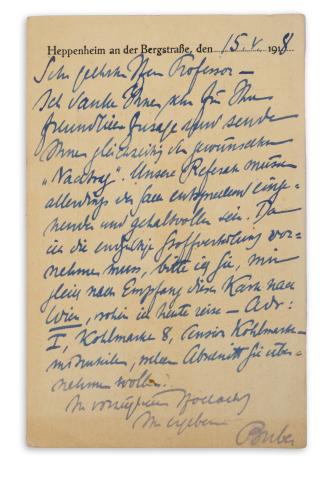 Heppenheim an der Bergstraße, den 15. V. 1918
Sehr geehrter Herr Professor –
Ich danke Ihnen sehr für Ihre
freundliche Zusage und sende
Ihnen gleichzeitig den gewünschten
„Nachtrag“. Unsere Referate müssen
allerdings der Sache entsprechend einge-
hender und gehaltvoller sein. Da
ich die endgültige Stoffverteilung vor-
nehmen muss, bitte ich Sie, mir
gleich nach Empfang dieser Karte nach
Wien, wohin ich heute reise – Adr:
I, Kohlmarkt 8, Pension Kohlmarkt
mitzuteilen, welchen Abschnitt Sie über-
nehmen wollen.
In vorzüglicher Hochachtung
Ihr ergebener
Buber